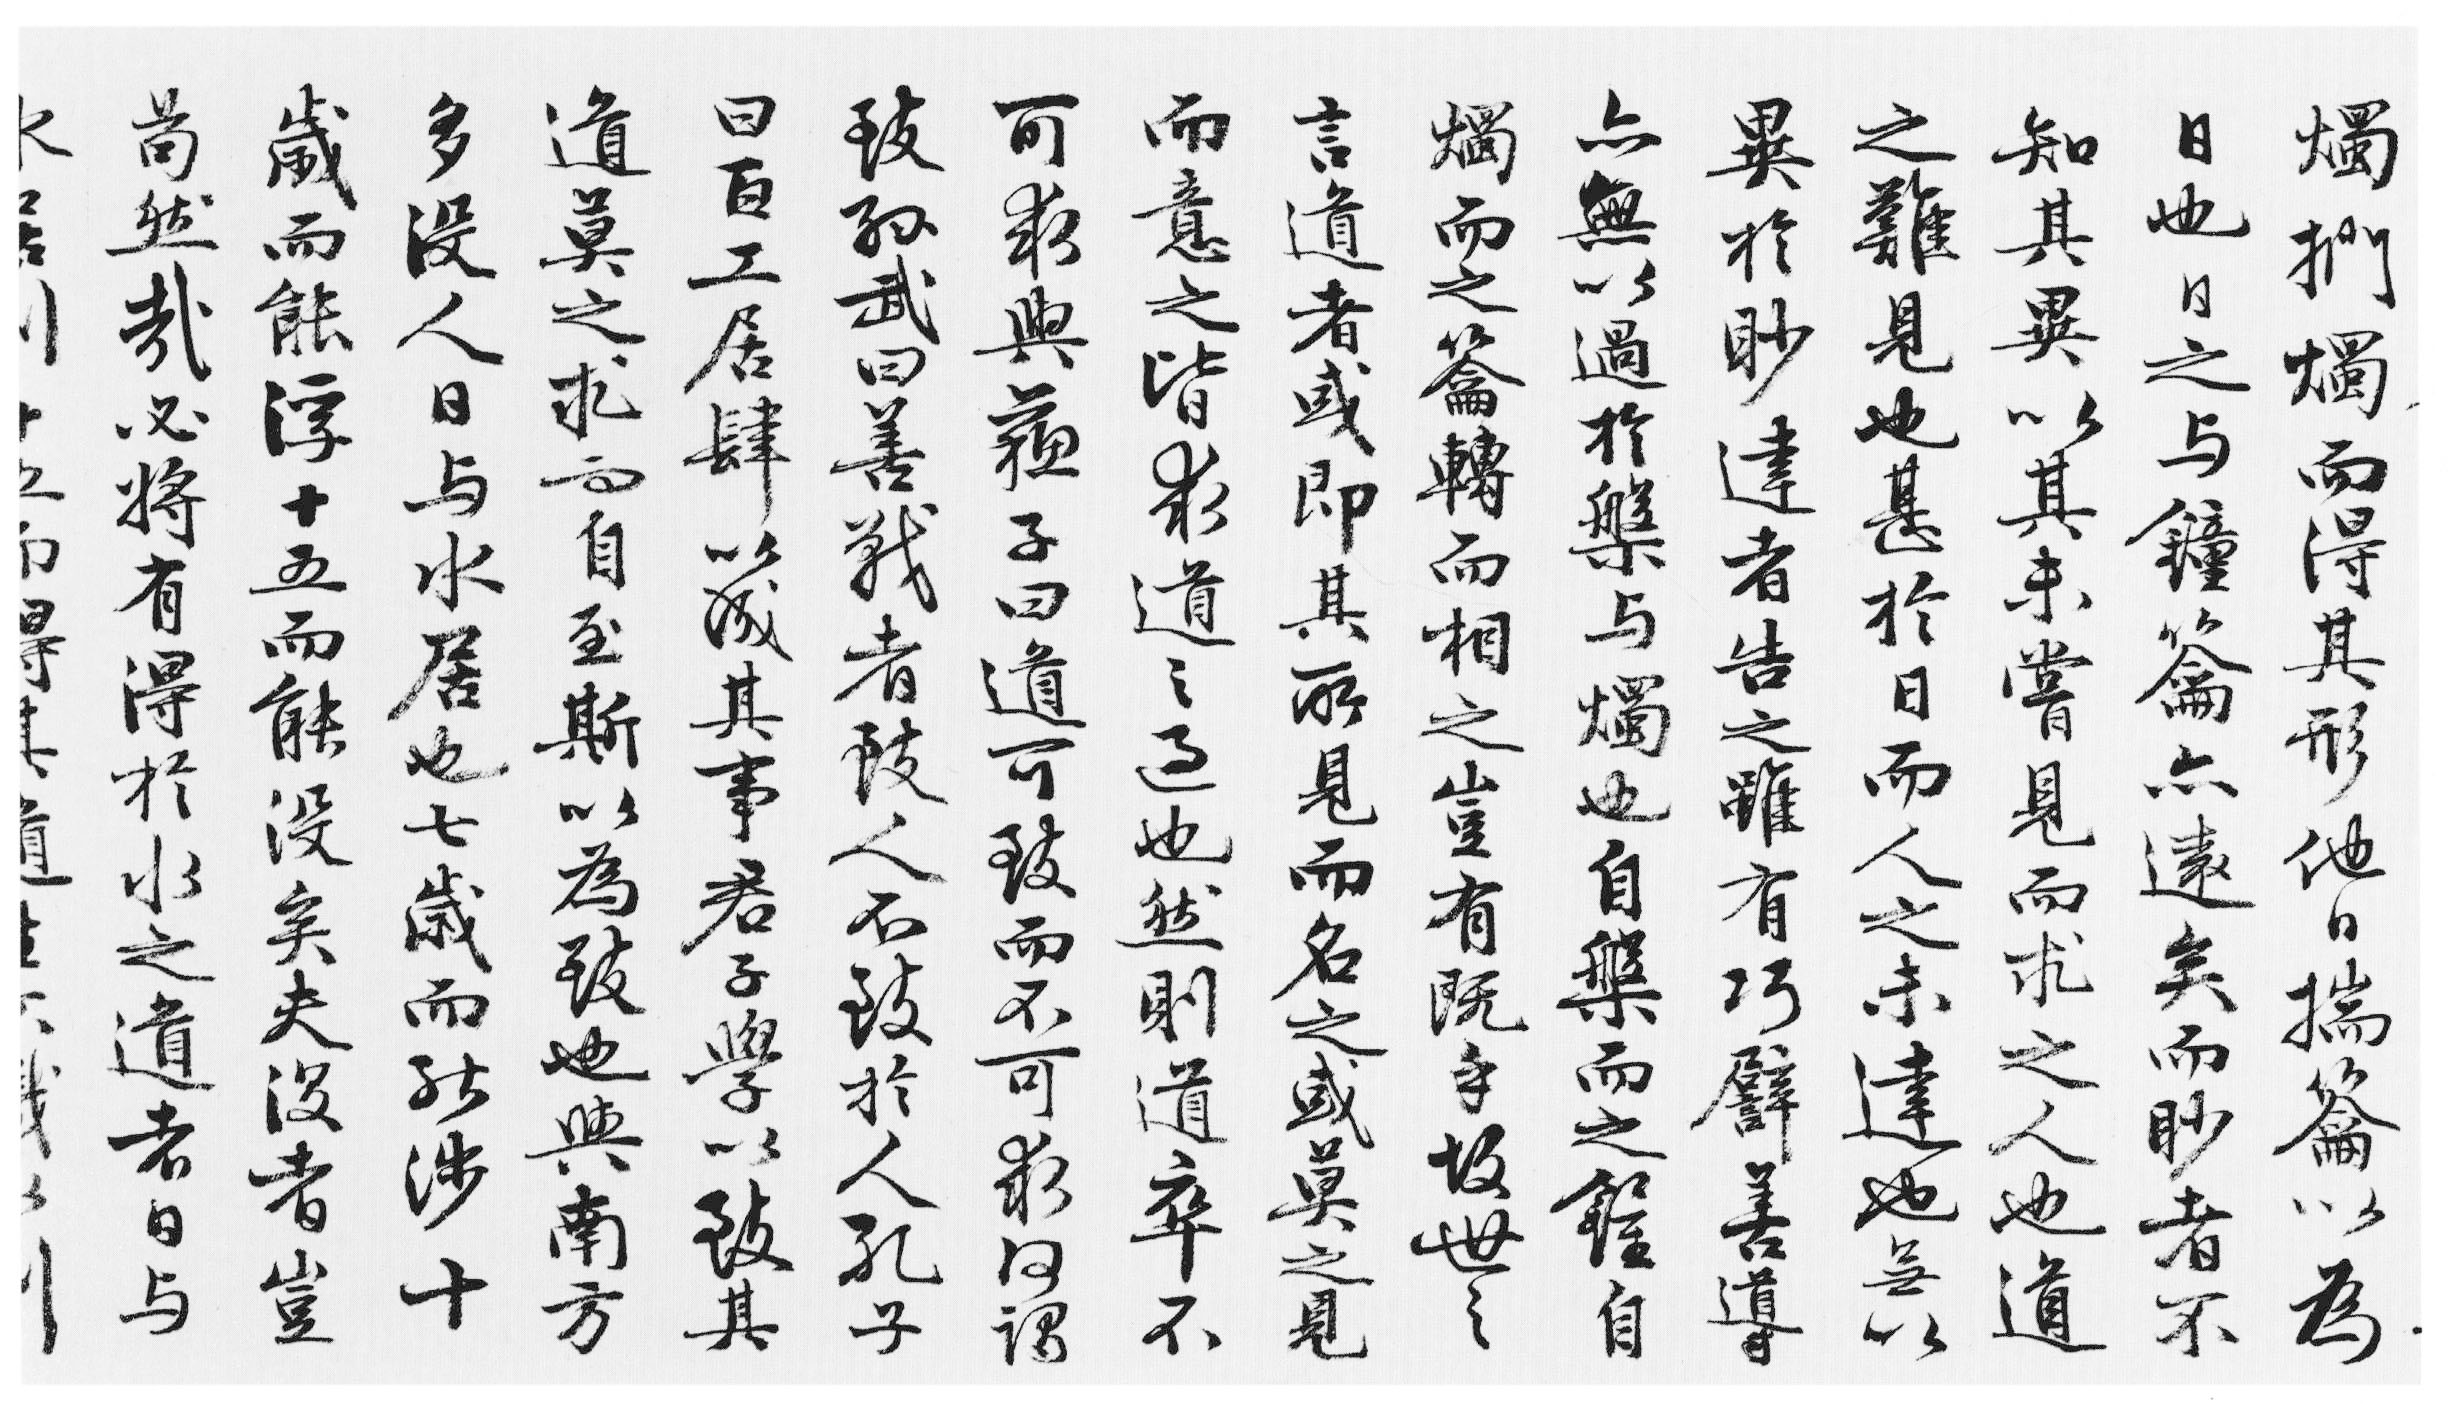 燭捫燭而得其形他日揣籥以為
日也日之与鐘籥亦遠矣而眇者不
知其異以其未嘗見而求之人也道
之難見也甚於日而人之未達也無以
異於眇達者告之雖有巧譬善導
亦無以過於槃与燭也自槃而之鐘自
燭而之籥轉而相之豈有既乎故世之
言道者或即其所見而名之或莫之見
而意之皆求道之過也然則道卒不
可求與蘇子曰道可致而不可求何謂
致孫武曰善戰者致人不致於人孔子
曰百工居肆以成其事君子學以致其
道莫之求而自至斯以為致也與南方
多没人日与水居也七歲而能涉十
歲而能浮十五而能没矣夫没者豈
苟然哉必將有得於水之道者日与
水居則十五而得其道生不識水則